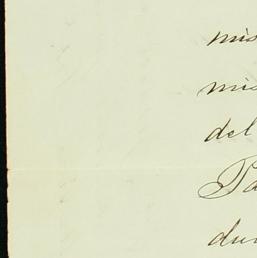 mis
mis
del
Pa
dur